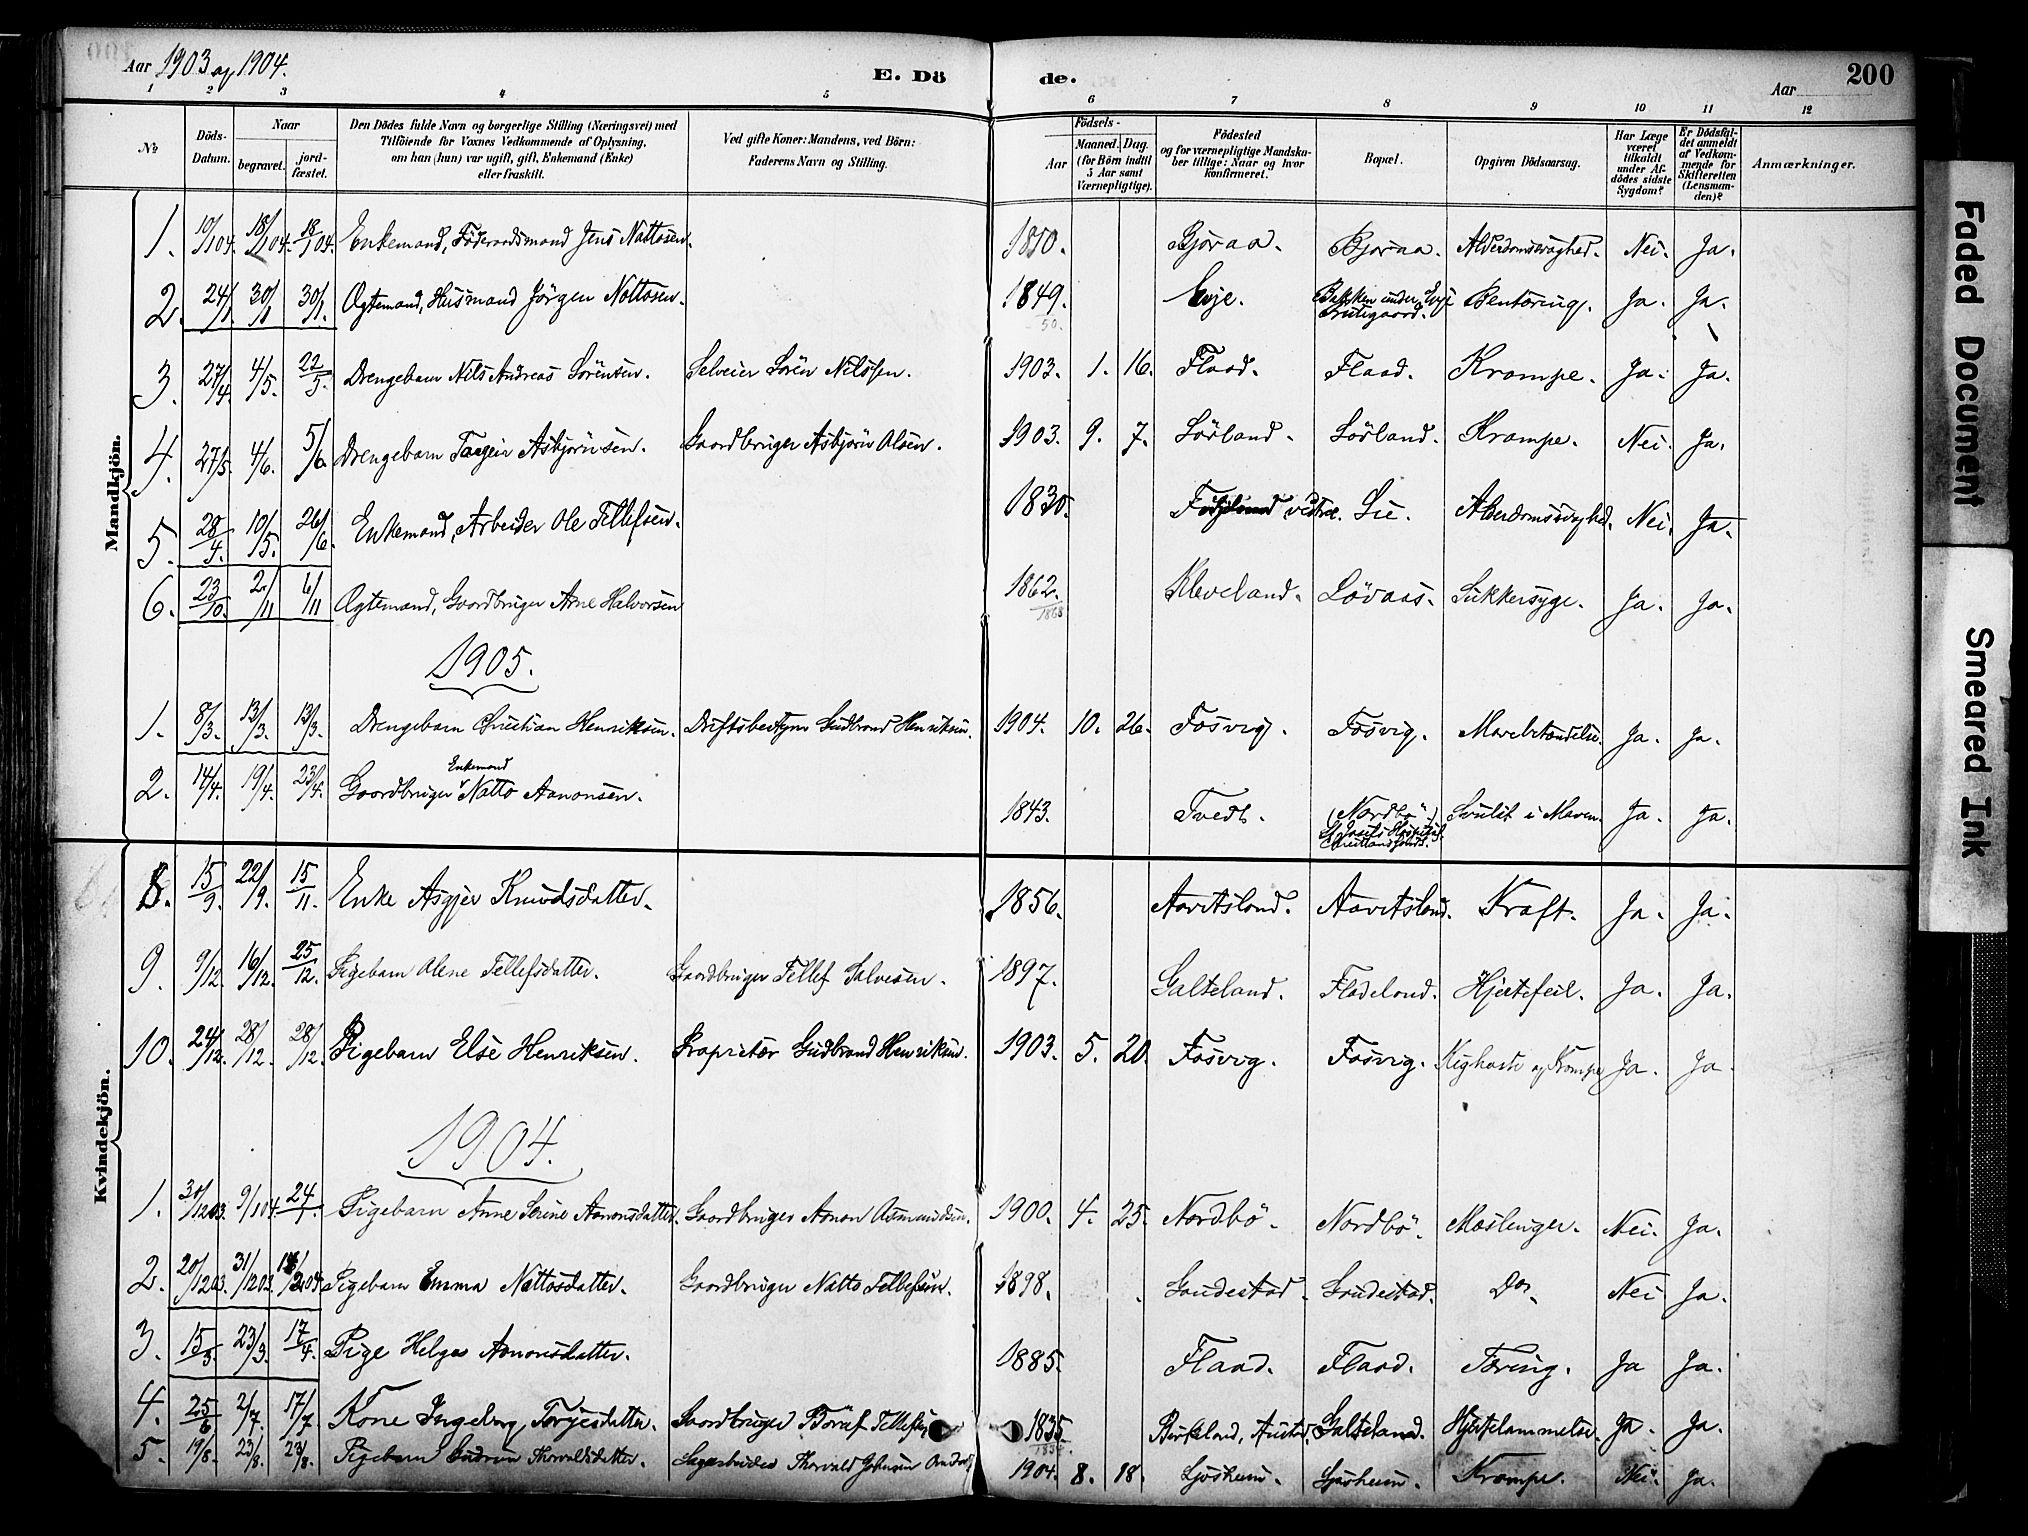 Aar 1903 og 1904.
E. Dö
de.
Aar
200
1 2 3 4 5 6 7 8 9 10 11 12
№
Döds-Datum.
Naar
begravet.
jord-fæstet.
Den Dödes fulde Navn og borgerlige Stilling (Næringsvei) med
Tilföiende for Voxnes Vedkommende af Oplysning,
om han (hun) var ugift, gift, Enkemand (Enke)
eller fraskilt.
Ved gifte Koner: Mandens, ved Börn:
Faderens Navn og Stilling.
Födsels-
Aar
Maaned. Dag.
(for Börn indtil
5 Aar samt
Værnepligtige).
Födested
og for værnepligtige Mandska-
ber tillige: Naar og hvor
konfirmeret.
Bopæl.
Opgiven Dödsaarsag.
Har Læge
været
tilkaldt
under Af-
dödes sidste
Sygdom?
Er Dödsfal-
det anmeldt
af Vedkom-
mende for
Skifteretten
(Lensman-
den)?
Anmærkninger.
Mandkjön.
1. 10/1 04. 18/1 04. 18/1 04. Enkemand, Föderaadsmand Jens Nattosen. 1810. Bjoraa. Bjoraa. Alderdomssvaghed. Nei. Ja.
2. 24/1. 30/1 30/1. Ægtemand, Husmand Jörgen Nottosen. 1849. Evje. Bakken under Evje Prestegaard. Ja. Ja.
50.
3. 27/4. 4/5. 22/5. Drengebarn Nils Andreas Sörensen. Selveier Sören Nilssen. 1903. 1. 16. Flaad. Flaad. Krampe. Ja. Ja.
4. 27/5. 4/6. 5/6 Drengebarn Torjein Asbjörnsen. Gaardbruger Asbjörn Olsen. 1903. 9. 7. Sörland. Sörland. Krampe. Nei. Ja.
5. 28/4. 10/5. 26/6. Enkemand, Arbeider Ole Tellefsen. 1830. vestre. Lie. Alderdomssvaghed. Nei. Ja.
6. 23/10. 2/11 6/11 Ægtemand, Gaardbruger Arne Halvorsen 1862. Kleveland. Lövaas. Sukkersyge. Ja. Ja.
1905.
1. 8/3. 13/3. 13/3. Drengebarn Christian Henriksen. Driftsbestyrer Gudbrand Henriksen. 1904. 10. 26. Fosvig. Fosvig. Mavebetændelse. Ja. Ja.
Enkemand
2. 14/4. 19/4. 23/4. Gaardbruger Natto Aanonsen. 1843. Tvedt. (Nordbö) St. Josefs Hospital Christianssand. Svulst i Maven. Ja. Ja.
Kvindekjön.
8. 15/9. 22/9. 15/11. Enke Asgjer Knudsdatter. 1856. Aavitsland. Aavitsland. Kræft. Ja. Ja.
9. 9/12. 16/12. 25/12. Pigebarn Alene Tellefsdatter. Gaardbruger Tellef Salvesen. 1897. Galteland. Flateland. Hjertefeil. Ja. Ja.
10. 24/12. 28/12. 28/12. Pigebarn Else Henriksen. Proprietær Gudbrand Henriksen. 1903. 5. 20. Fosvig. Fosvig. Kighoste og Krampe Ja. Ja.
1904.
1. 30/12 03. 9/1 04. 24/1. Pigebarn Anne Serine Aanonsdatter. Gaardbruger Aanon Aasmundsen. 1900. 4. 25. Nordbö. Nordbö. Mæslinger. Nei. Ja.
2. 20/12 03. 31/12 03. Pigebarn Emma Nattosdatter. Gaardbruger Natto Tellefsen. 1898. Landestad. Landestad. Do. Nei Ja.
3. 15/3. 23/3. 17/4. Pige Helga Aanonsdatter. 1885. Flaad. Flaad. Tæring. Ja Ja.
4. 25/6 2/7. 17/7. Kone Ingeborg Torjesdatter. Gaardbruger Tellefsen 1835. Birkeland, Austad. Galteland. Hjertelammelse. Ja. Ja.
5. 19/8. 23/8. 23/8. Pigebarn Gudrun Thorvaldsdatter. Sagarbeider Thorvald Johnsen 1904. 8. 18. Ljosheim. Ljosheim. Krampe. Nei. Ja.
Faded Document
Smeared Ink